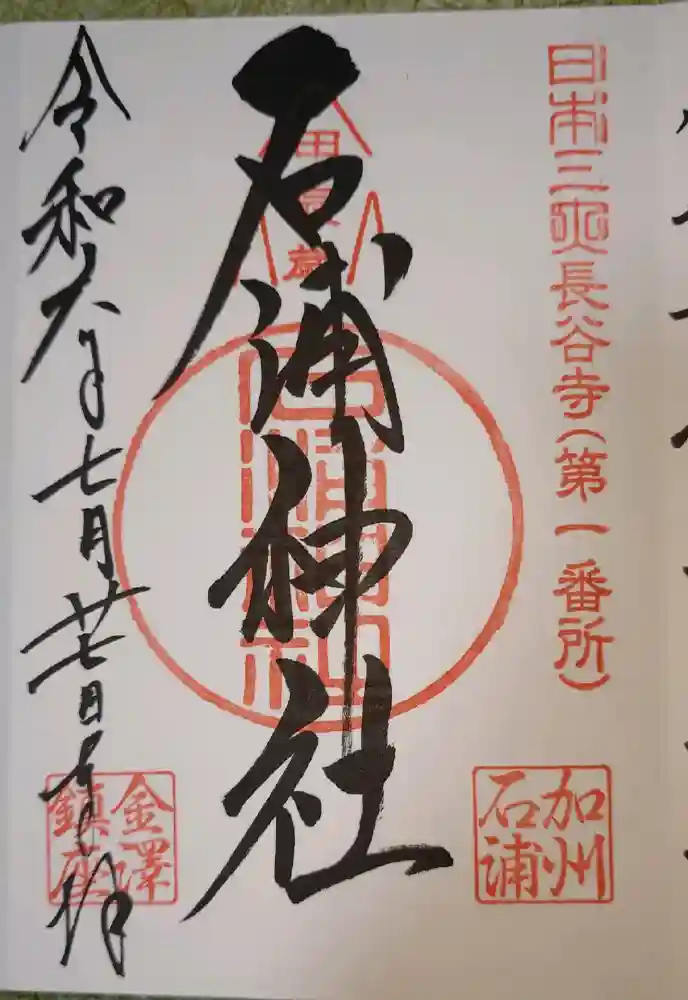 日本三大長谷寺(第一番所)
加州
石浦
甲辰歳
石浦神社
令和六年七月廿七日奉拝
金澤
鎮座